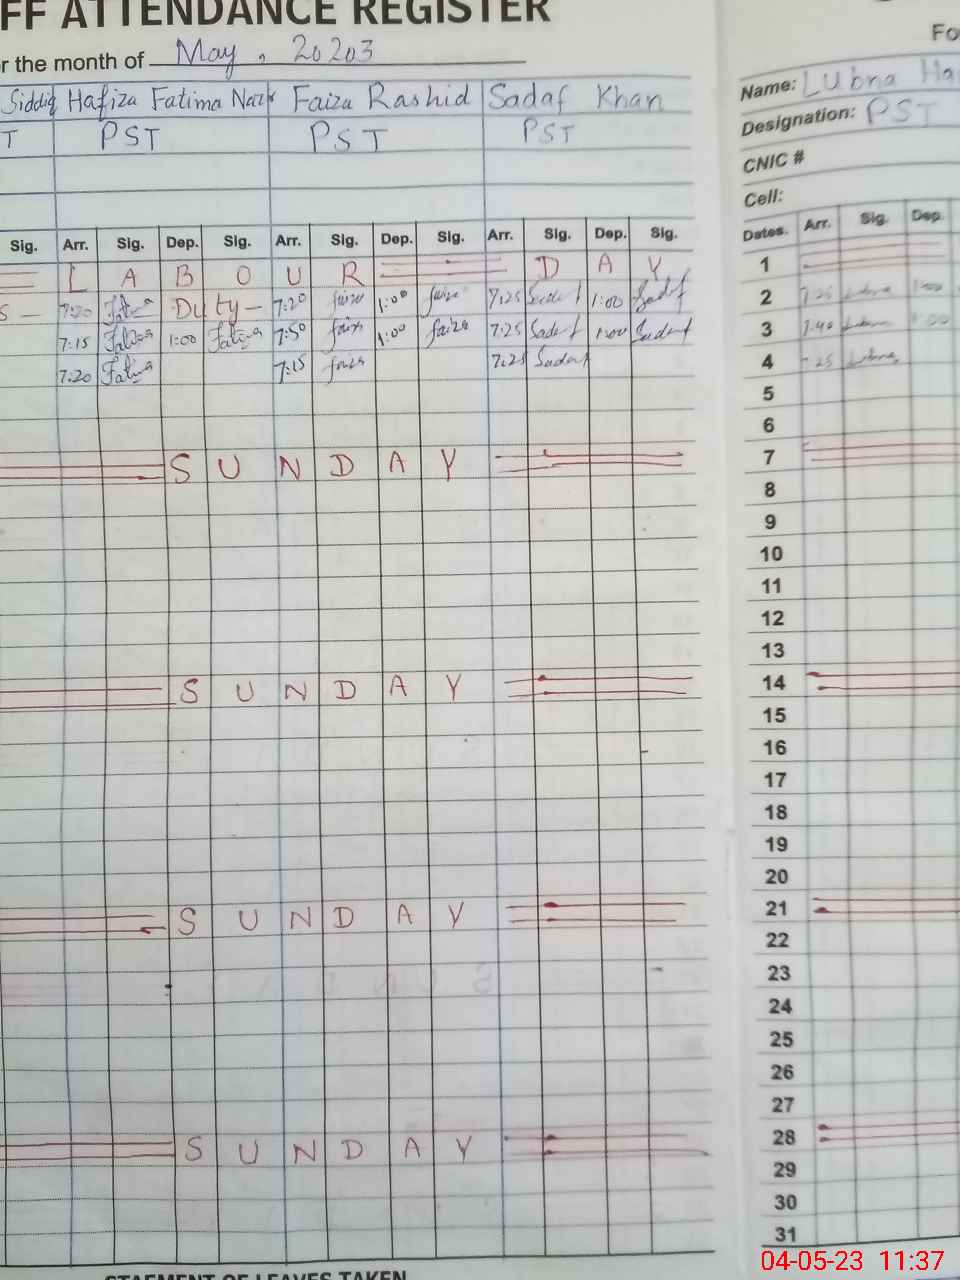 FF ATTENDANCE REGISTER
r the month of May, 20203
Siddiq Hafiza Fatima Nazir Faiza Rashid Sadaf Khan
T PST PST PST
Sig. Arr. Sig. Dep. Sig. Arr. Sig. Dep. Sig. Arr. Sig. Dep. Sig.
L A B O U R D A Y
S - 7:20 Duty - 7:20 faiza 1:00 faiza 7:25 Sadaf 1:00 Sadaf
7:15 Fatima 1:00 Fatima 7:50 faiza 1:00 faiza 7:25 Sadaf 1:00 Sadaf
7:20 Fatima 7:15 faiza 7:25 Sadaf
S U N D A Y
S U N D A Y
S U N D A Y
S U N D A Y
STAEMENT OF LEAVES TAKEN
Fo
Name: Lubna Ha
Designation: PST
CNIC #
Cell:
Dates. Arr. Sig. Dep.
1
2 7:25 Lubna 1:00
3 7:40 Lubna 1:00
4 7:25 Lubna
5
6
7
8
9
10
11
12
13
14
15
16
17
18
19
20
21
22
23
24
25
26
27
28
29
30
31
04-05-23 11:37